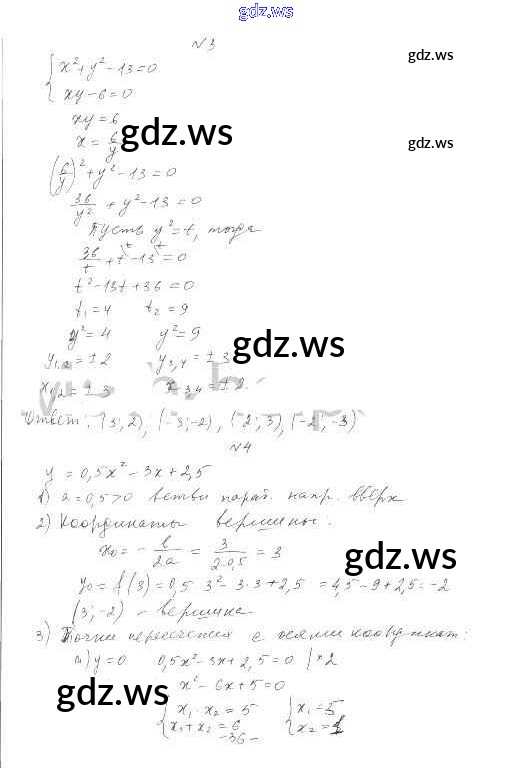 gdz.ws
№3
gdz.ws
{x²+y²-13=0
xy-6=0
xy=6
gdz.ws
x=6/y
gdz.ws
(6/y)²+y²-13=0
36/y²+y²-13=0
Пусть y²=t, тогда
36/t+t-13=0
t²-13t+36=0
t₁=4 t₂=9
y²=4 y²=9
gdz.ws
y₁,₂=±2 y₃,₄=±3
x₁,₂=±3 x₃,₄=±2
Ответ: (3;2), (-3;-2), (2;3), (-2;-3)
№4
gdz.ws
y=0,5x²-3x+2,5
1) a=0,5>0 ветви параб. напр. вверх
2) Координаты вершины:
x₀=-b/2a=3/2·0,5=3
gdz.ws
y₀=f(3)=0,5·3²-3·3+2,5=4,5-9+2,5=-2
(3;-2) - вершина
3) Точки пересечения с осями координат:
а) y=0 0,5x²-3x+2,5=0 |*2
x²-6x+5=0
gdz.ws
{x₁·x₂=5 {x₁=5
x₁+x₂=6 x₂=1
-36-